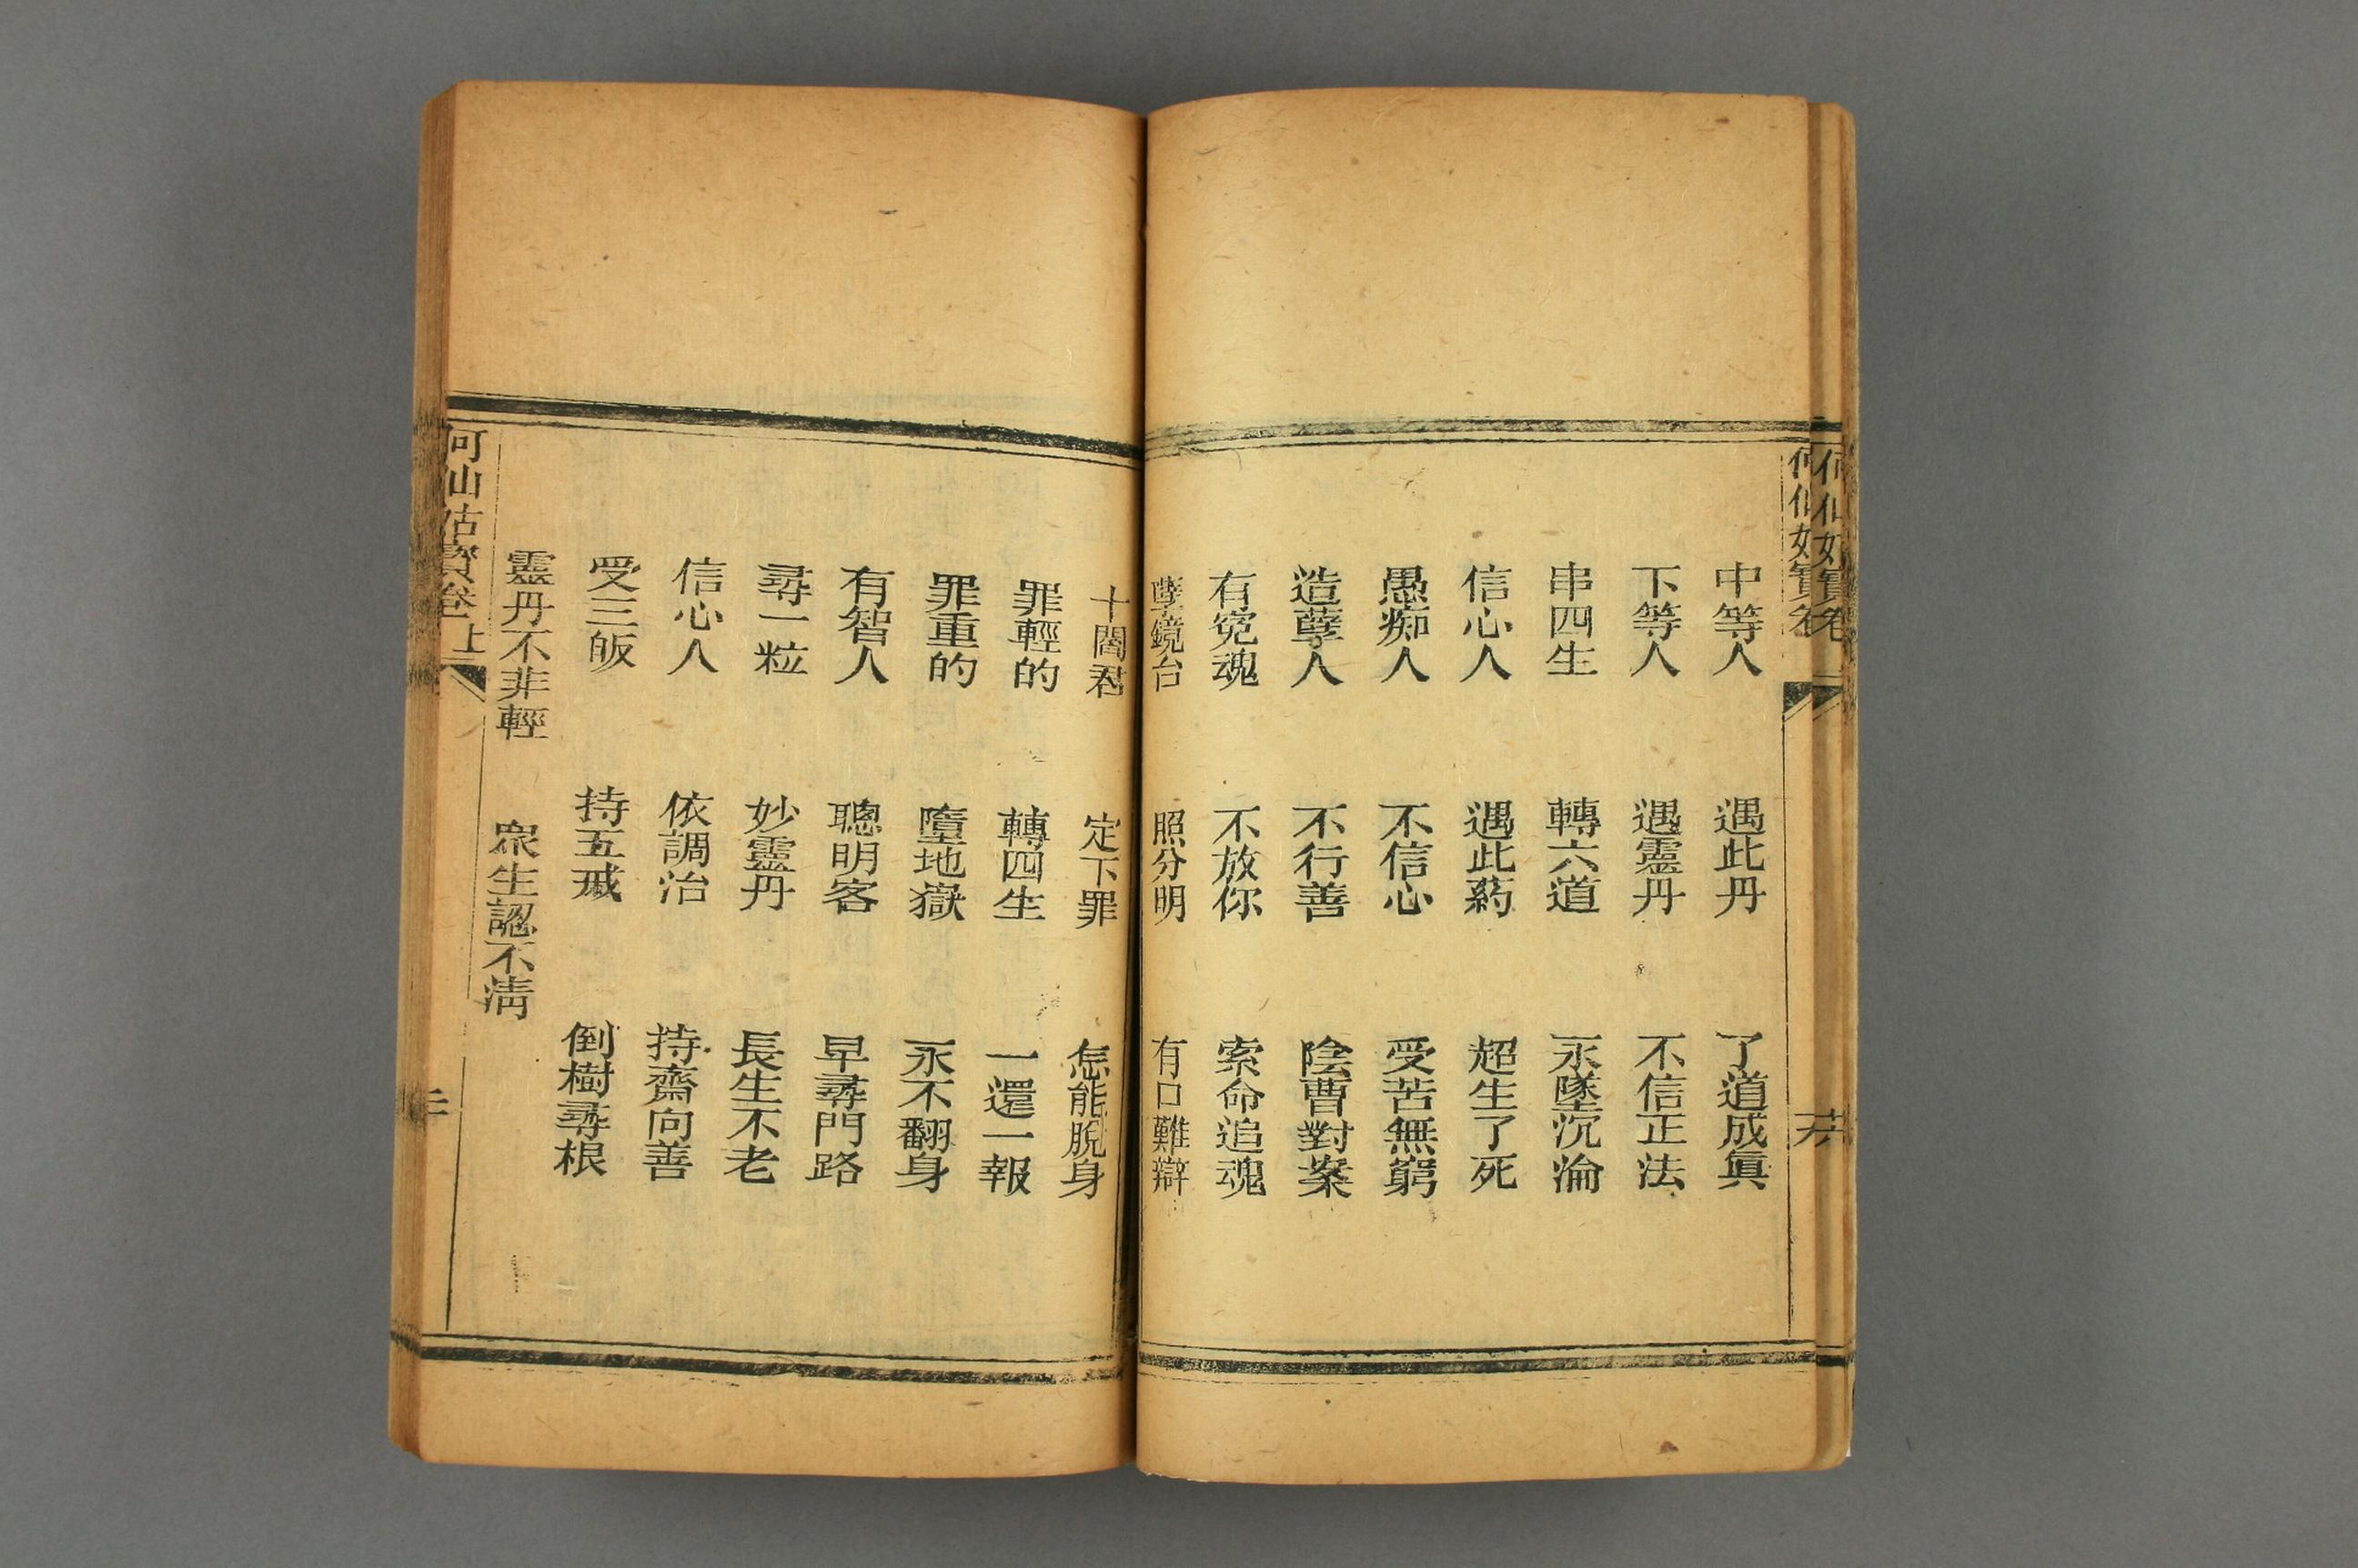 中等人 遇此丹 了道成眞
下等人 遇靈丹 不信正法
串四生 轉六道 永墜沉淪
信心人 遇此葯 超生了死
愚痴人 不信心 受苦無窮
造孽人 不行善 陰曹對案
有寃魂 不放你 索命追魂
孽鏡台 照分明 有口難辯
十閻君 定下罪 怎能脫身
罪輕的 轉四生 一還一報
罪重的 墮地嶽 永不翻身
有智人 聰明客 早尋門路
尋一粒 妙靈丹 長生不老
信心人 依調治 持齋向善
受三皈 持五戒 倒樹尋根
靈丹不非輕 衆生認不淸
何仙姑寶卷上